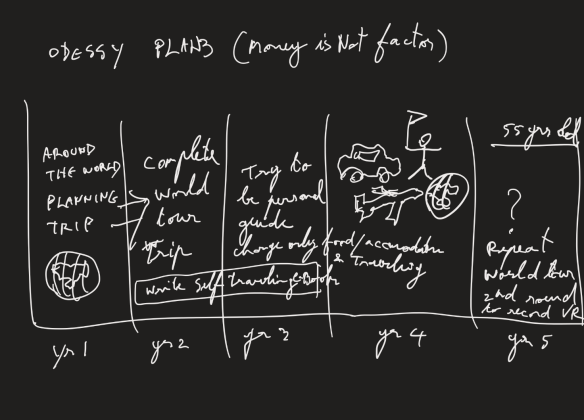 ODESSY PLAN3 (Money is Not factor)
AROUND
THE WORLD
PLANNING
TRIP
Complete
world
tour
trip
write self traveling Book
Try to
be personal
guide
charge only food/accomodation
& Traveling
55 yrs old
?
Repeat
World tour
2nd round
to record VR
yr 1
yr 2
yr 3
yr 4
yr 5